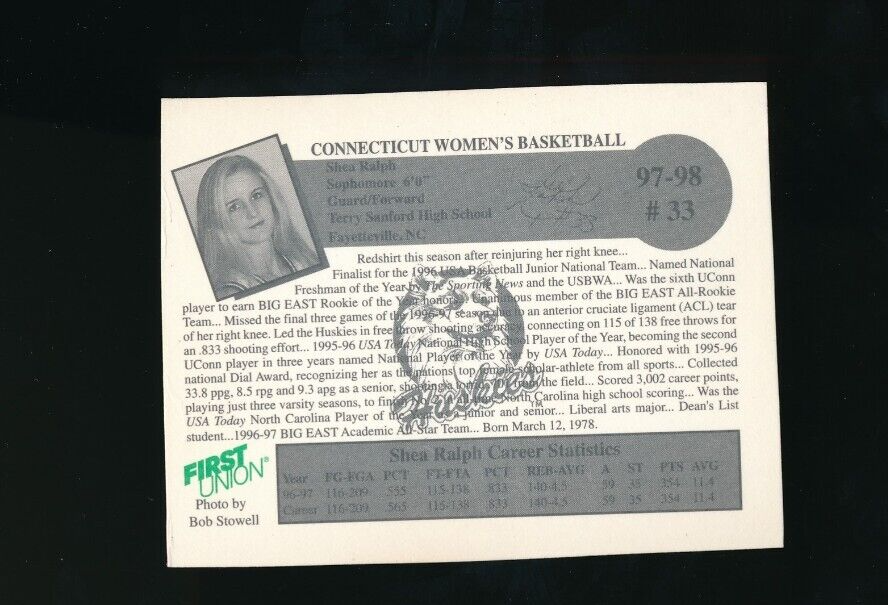 CONNECTICUT WOMEN'S BASKETBALL
Shea Ralph
Sophomore 6'0"
Guard/Forward
Terry Sanford High School
Fayetteville, NC
97-98
# 33
Redshirt this season after reinjuring her right knee...
Finalist for the 1996 USA Basketball Junior National Team... Named National
Freshman of the Year by The Sporting News and the USBWA... Was the sixth UConn
player to earn BIG EAST Rookie of the Year honors... Unanimous member of the BIG EAST All-Rookie
Team... Missed the final three games of the 1996-97 season due to an anterior cruciate ligament (ACL) tear
of her right knee. Led the Huskies in free throw shooting accuracy connecting on 115 of 138 free throws for
an .833 shooting effort... 1995-96 USA Today National High School Player of the Year, becoming the second
UConn player in three years named National Player of the Year by USA Today... Honored with 1995-96
national Dial Award, recognizing her as the nations top female scholar-athlete from all sports... Collected
33.8 ppg, 8.5 rpg and 9.3 apg as a senior, shooting the field... Scored 3,002 career points,
playing just three varsity seasons, to finish No. North Carolina high school scoring... Was the
USA Today North Carolina Player of the Year junior and senior... Liberal arts major... Dean's List
student...1996-97 BIG EAST Academic All-Star Team... Born March 12, 1978.
Huskies
TM
FIRST
UNION®
Photo by
Bob Stowell
Shea Ralph Career Statistics
Year FG-FGA PCT FT-FTA PCT REB-AVG A ST PTS AVG
96-97 116-209 555 115-138 833 140-4.5 59 35 354 11.4
Career 116-209 565 115-138 833 140-4.5 59 35 354 11.4